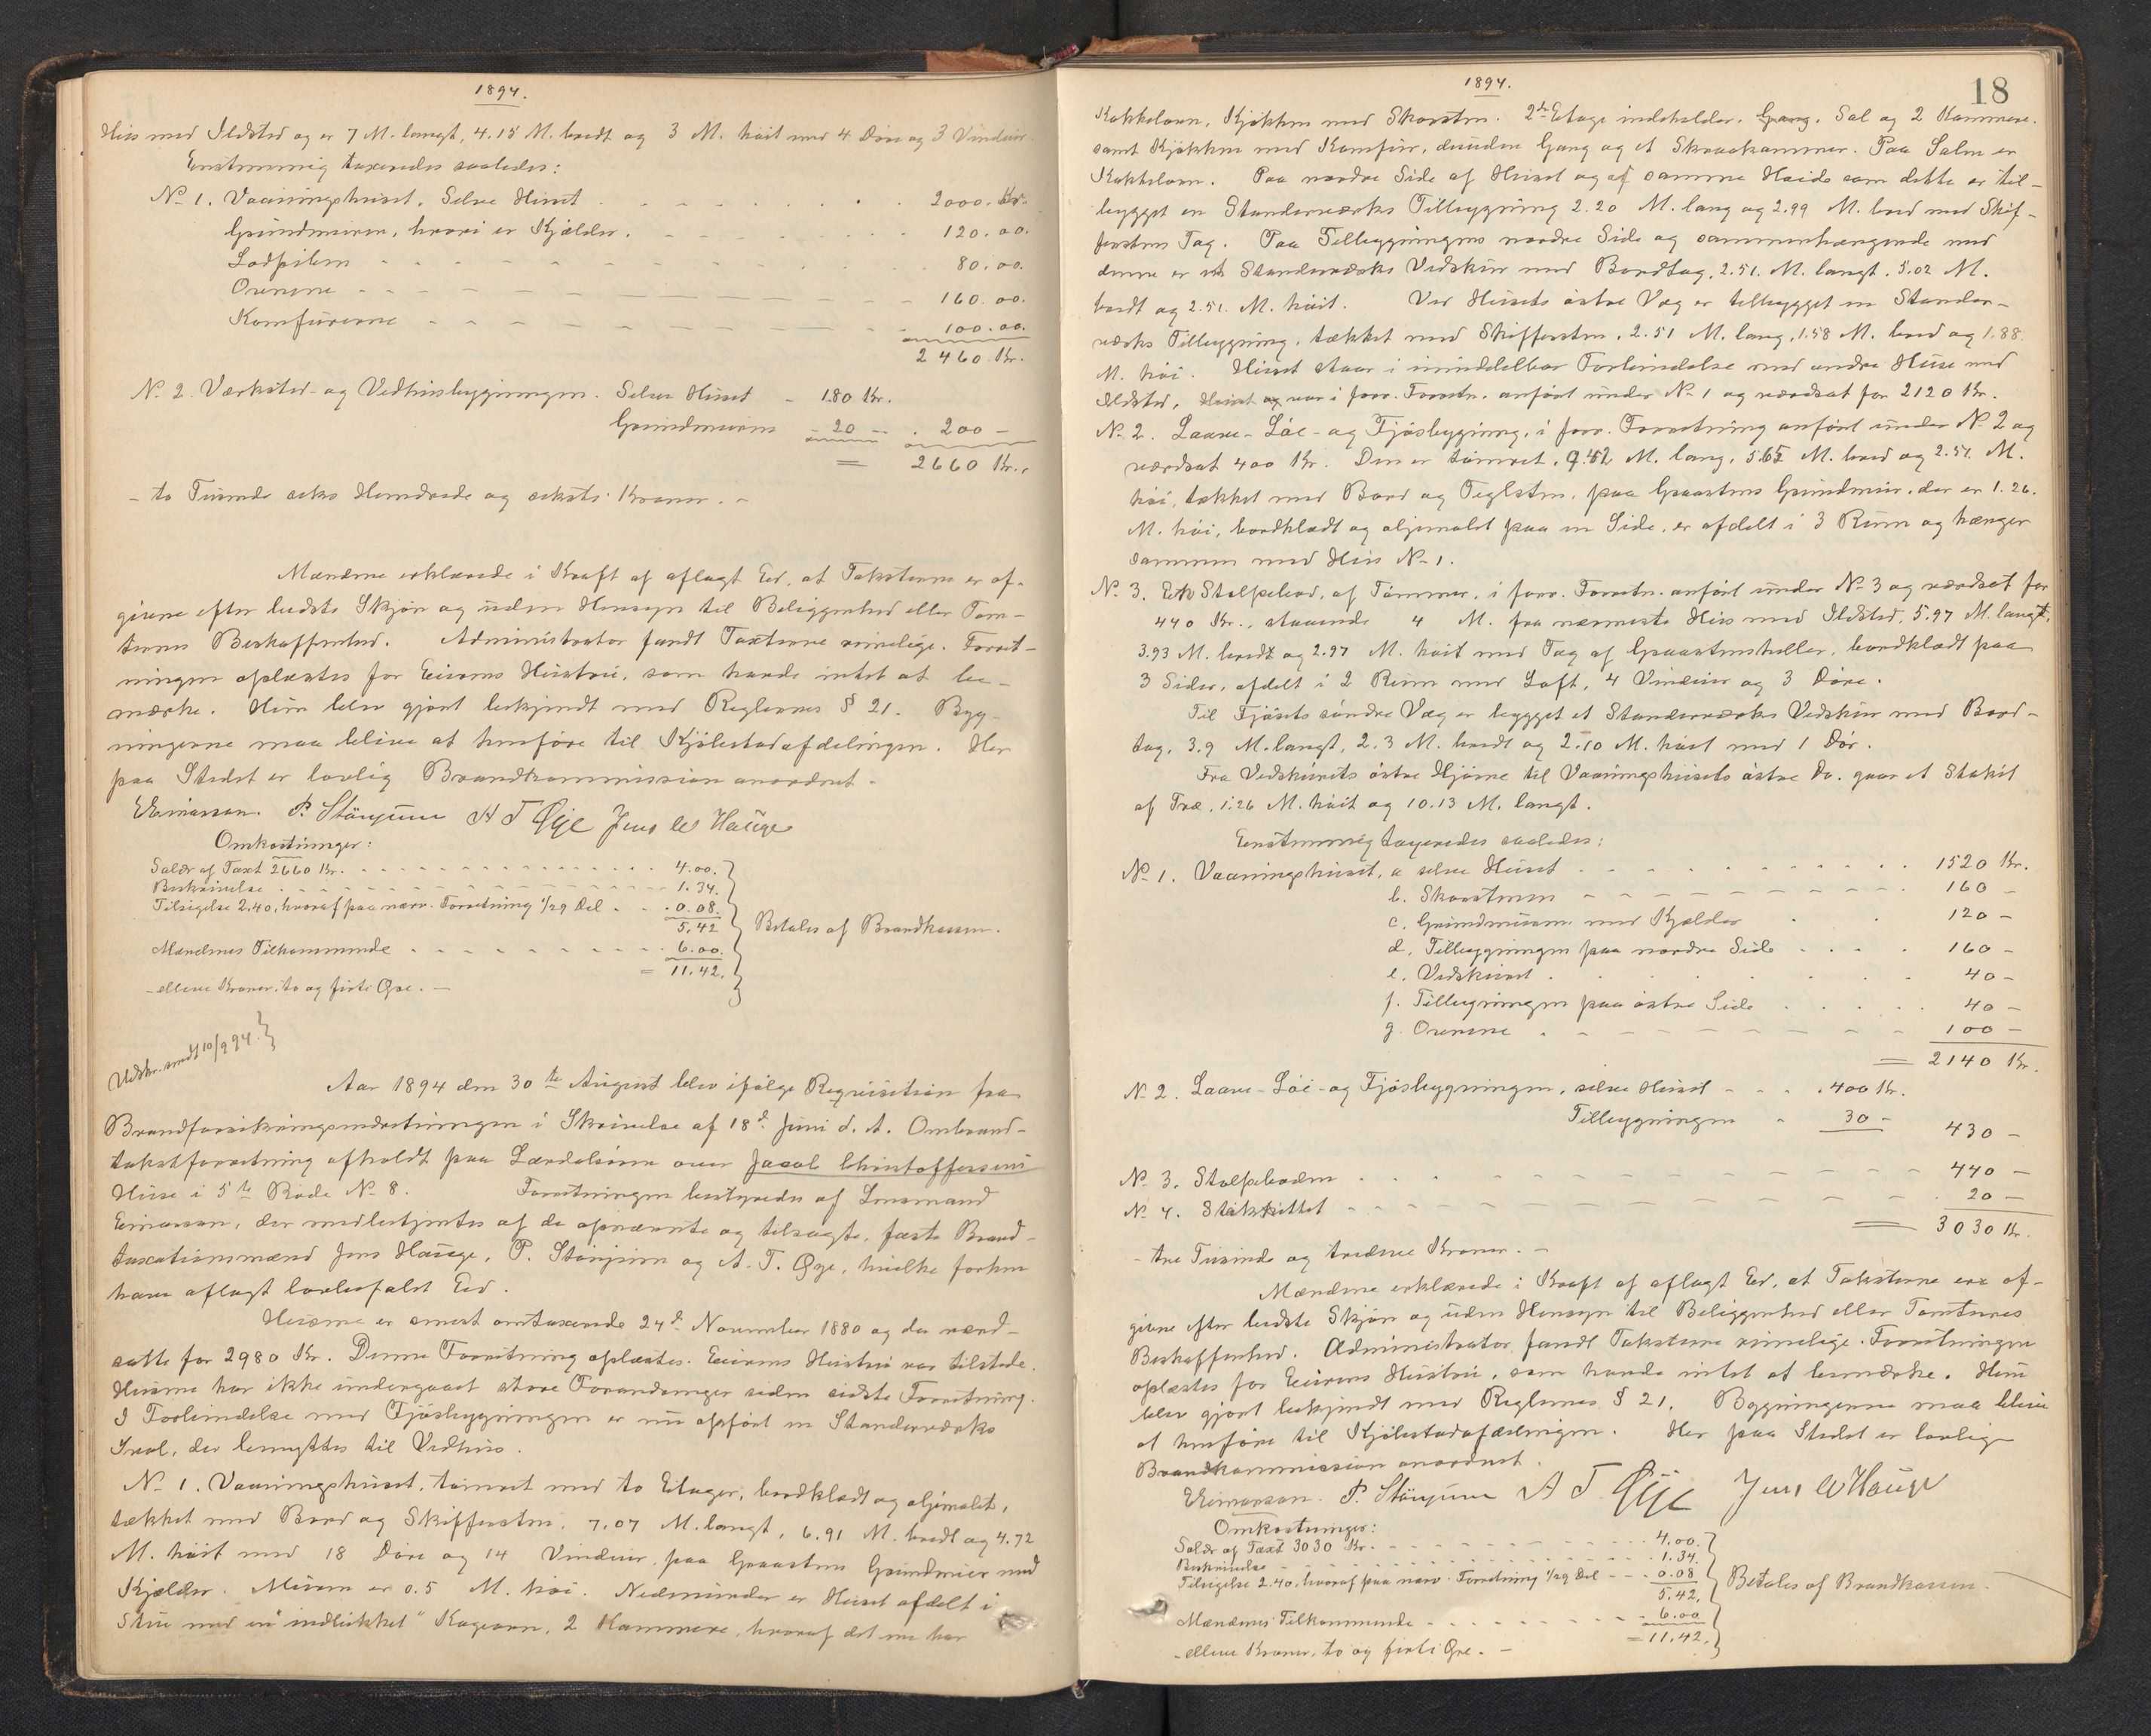 1894.
Hus med Ildsted og er 7 M. langt, 4.15 M. bredt og 3 M. høit med 4 Døre og 3 Vinduer.
Enstemmig taxeredes saaledes:
No 1. Vaaningshuset, Selve Huset 2000. Kr.
Grundmuren, hvori er Kjælder. 120.00.
Ladpiben 80.00.
Ovnene 160.00.
Komfurerne 100.00.
2460 Kr.
No 2. Værksted- og Vedhusbygningen. Selve Huset 180 Kr.
Grundmuren 20 — 200 —
= 2660 Kr.
- to Tusinde seks Hundrede og seksti Kroner. -
Mændene erklærede i Kraft af aflagt Ed, at Taksterne er af-
givne efter bedste Skjøn og uden Hensyn til Beliggenhed eller Tom-
ternes Beskaffenhed. Administrator fandt Taxterne rimelige. Forret-
ningen oplæstes for Eierens Hustru, som havde intet at be-
mærke. Hun blev gjort bekjendt med Reglernes § 21. Byg-
ningerne maa blive at henføre til Kjøbstadafdelingen. Her
paa Stedet er lovlig Brandkommission anordnet.
EEinarson. P. Stønjum A T Øye Jens W Hauge
Omkostninger:
Salær af Taxt 2660 Kr. 4.00.
Beskrivelse 1.34.
Tilsigelse 2.40, hvoraf paa nærv. Forretning 1/29 Del 0.08.
5,42 Betales af Brandkassen.
Mændenes Tilkommende 6.00.
= 11.42.
- elleve Kroner, to og firti Øre. -
Udskr. sendt 10/9 94.
Aar 1894 den 30te August blev ifølge Requisition fra
Brandforsikringsindretningen i Skrivelse af 18d Juni d. A. Ombrand-
takstforretning afholdt paa Lærdalsøren over Jacob Christoffersens
Huse i 5te Rode No 8. Forretningen bestyredes af Lensmand
Einarson, der medbetjentes af de opnævnte og tilsagte, faste Brand-
taxationsmænd Jens Hauge, P. Stønjum og A. T. Øye, hvilke forhen
have aflagt lovbefalet Ed.
Husene er senest omtaxerede 24d November 1880 og da værd-
satte for 2980 Kr. Denne Forretning oplæstes. Eierens Hustru var tilstede.
Husene har ikke undergaaet store Forandringer siden sidste Forretning.
I Forbindelse med Fjøsbygningen er nu opført en Standerværks
Sval, der benyttes til Vedhus.
No 1. Vaaningshuset, tømret med to Etager, bordklædt og oljemalet,
tækket med Bord og Skiffersten, 7.07 M. langt, 6.91 M. bredt og 4.72
M. høit med 18 Døre og 14 Vinduer, paa Graastens Grundmur med
Kjælder. Muren er 0.5 M. høi. Nedenunder er Huset afdelt i
Stue med en "indlukket" Kageovn, 2 Kammere, hvoraf det ene har
1894.
18
Kakkelovn, Kjøkken med Skorsten. 2d Etage indeholder. Gang. Sal og 2 Kammere.
samt Kjøkken med Komfur, desuden Gang og et Skraakammer. Paa Salen er
Kakkelovn. Paa nordre Side af Huset og af samme Høide som dette er til-
bygget en Standerværks Tilbygning 2.20 M. lang og 2.99 M. bred med Skif-
ferstens Tag. Paa Tilbygningens nordre Side og sammenhængende med
denne er et Standerværks Vedskur med Bordtag, 2.51. M. langt. 5.02 M.
bredt og 2.51. M. høit. Ved Husets østre Væg er tilbygget en Stander-
værks Tilbygning, tækket med Skiffersten, 2.51 M. lang, 1.58 M. bred og 1.88
M. høi. Huset staar i umiddelbar Forbindelse med andre Huse med
Ildsted, Huset og var i forr. Forretn. anført under No 1 og værdsat for 2120 Kr.
No 2. Laave- Løe- og Fjøsbygning, i forr. Forretning anført under No 2 og
værdsat 400 Kr. Den er tømret, 9.42 M. lang, 5.65 M. bred og 2.51. M.
høi, tækket med Bord og Teglsten, paa Graastens Grundmur, der er 1.26.
M. høi, bordklædt og oljemalet paa en Side, er afdelt i 3 Rum og hænger
sammen med Hus No 1.
No 3. Et Stolpebod, af Tømmer, i forr. Forretn. anført under No 3 og værdsat for
440 Kr., staaende 4 M. fra nærmeste Hus med Ildsted, 5.97 M. langt,
3.93 M. bredt og 2.97 M. høit med Tag af Graastensheller, bordklædt paa
3 Sider, afdelt i 2 Rum med Loft, 4 Vinduer og 3 Døre.
Til Fjøsets søndre Væg er bygget et Standerværks Vedskur med Bord-
tag, 3.9 M. langt, 2.3 M. bredt og 2.10 M. høit med 1 Dør.
Fra Vedskurets østre Hjørne til Vaaningshusets østre Do. gaar et Stakit
af Træ, 1.26 M. høit og 10.13 M. langt.
Enstemmig taxeredes saaledes:
No 1. Vaaningshuset, a selve Huset 1520 Kr.
b. Skorstenen 160 —
c. Grundmuren med Kjælder 120 —
d. Tilbygningen paa nordre Side 160 —
e. Vedskuret 40 —
f. Tilbygningen paa østre Side 40 —
g. Ovnene 100 —
= 2140 Kr.
No 2. Laave- Løe- og Fjøsbygningen, selve Huset 400 Kr.
Tilbygningen 30 — 430 —
No 3. Stolpeboden 440 —
No 4. Stakittet 20 —
= 3030 Kr.
- tre Tusinde og tredive Kroner. -
Mændene erklærede i Kraft af aflagt Ed, at Taksterne ere af-
givne efter bedste Skjøn og uden Hensyn til Beliggenhed eller Tomternes
Beskaffenhed. Administrator fandt Taksterne rimelige. Forretningen
oplæstes for Eierens Hustru, som havde intet at bemærke. Hun
blev gjort bekjendt med Reglernes § 21. Bygningerne maa blive
at henføre til Kjøbstadafdelingen. Her paa Stedet er lovlig
Brandkommission anordnet.
EEinarson. P. Stønjum A T Øye Jens W Hauge
Omkostninger:
Salær af Taxt 3030 Kr. 4.00.
Beskrivelse 1.34.
Tilsigelse 2.40, hvoraf paa nærv. Forretning 1/29 Del 0.08
5,42. Betales af Brandkassen.
Mændenes Tilkommende 6.00
= 11.42.
- elleve Kroner, to og firti Øre. -